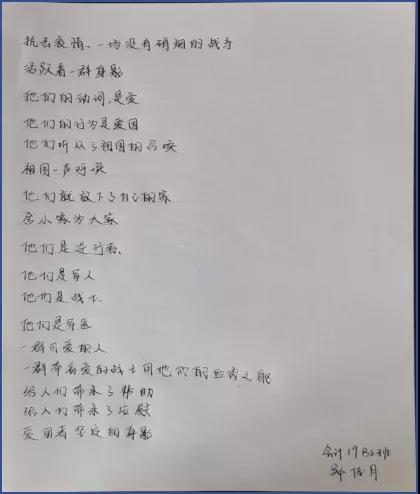 抗击疫情、一场没有硝烟的战争
活跃着一群身影
他们的动词,是爱
他们的行为是爱国
他们听从了祖国的召唤
祖国一声呼唤
他们就放下了自己的家
舍小家为大家
他们是逆行者,
他们是军人
他们是战士.
他们是军医
一群可爱的人
一群带着爱的战士用他们的血肉之躯
给人们带来了帮助
给人们带来了安慰
爱国者坚定的身影
会计19B2班
郑 月